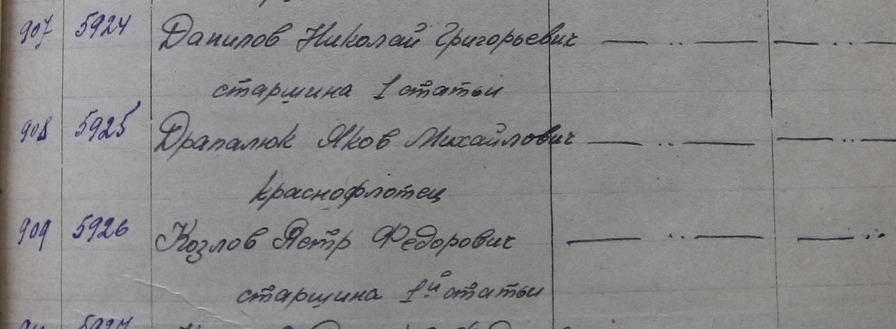 907 5924 Данилов Николай Григорьевич — " — — " —
старшина 1 статьи
908 5925 Драпалюк Яков Михайлович — " — — " —
краснофлотец
909 5926 Козлов Петр Федорович — " — — " —
старшина 1й статьи
5927